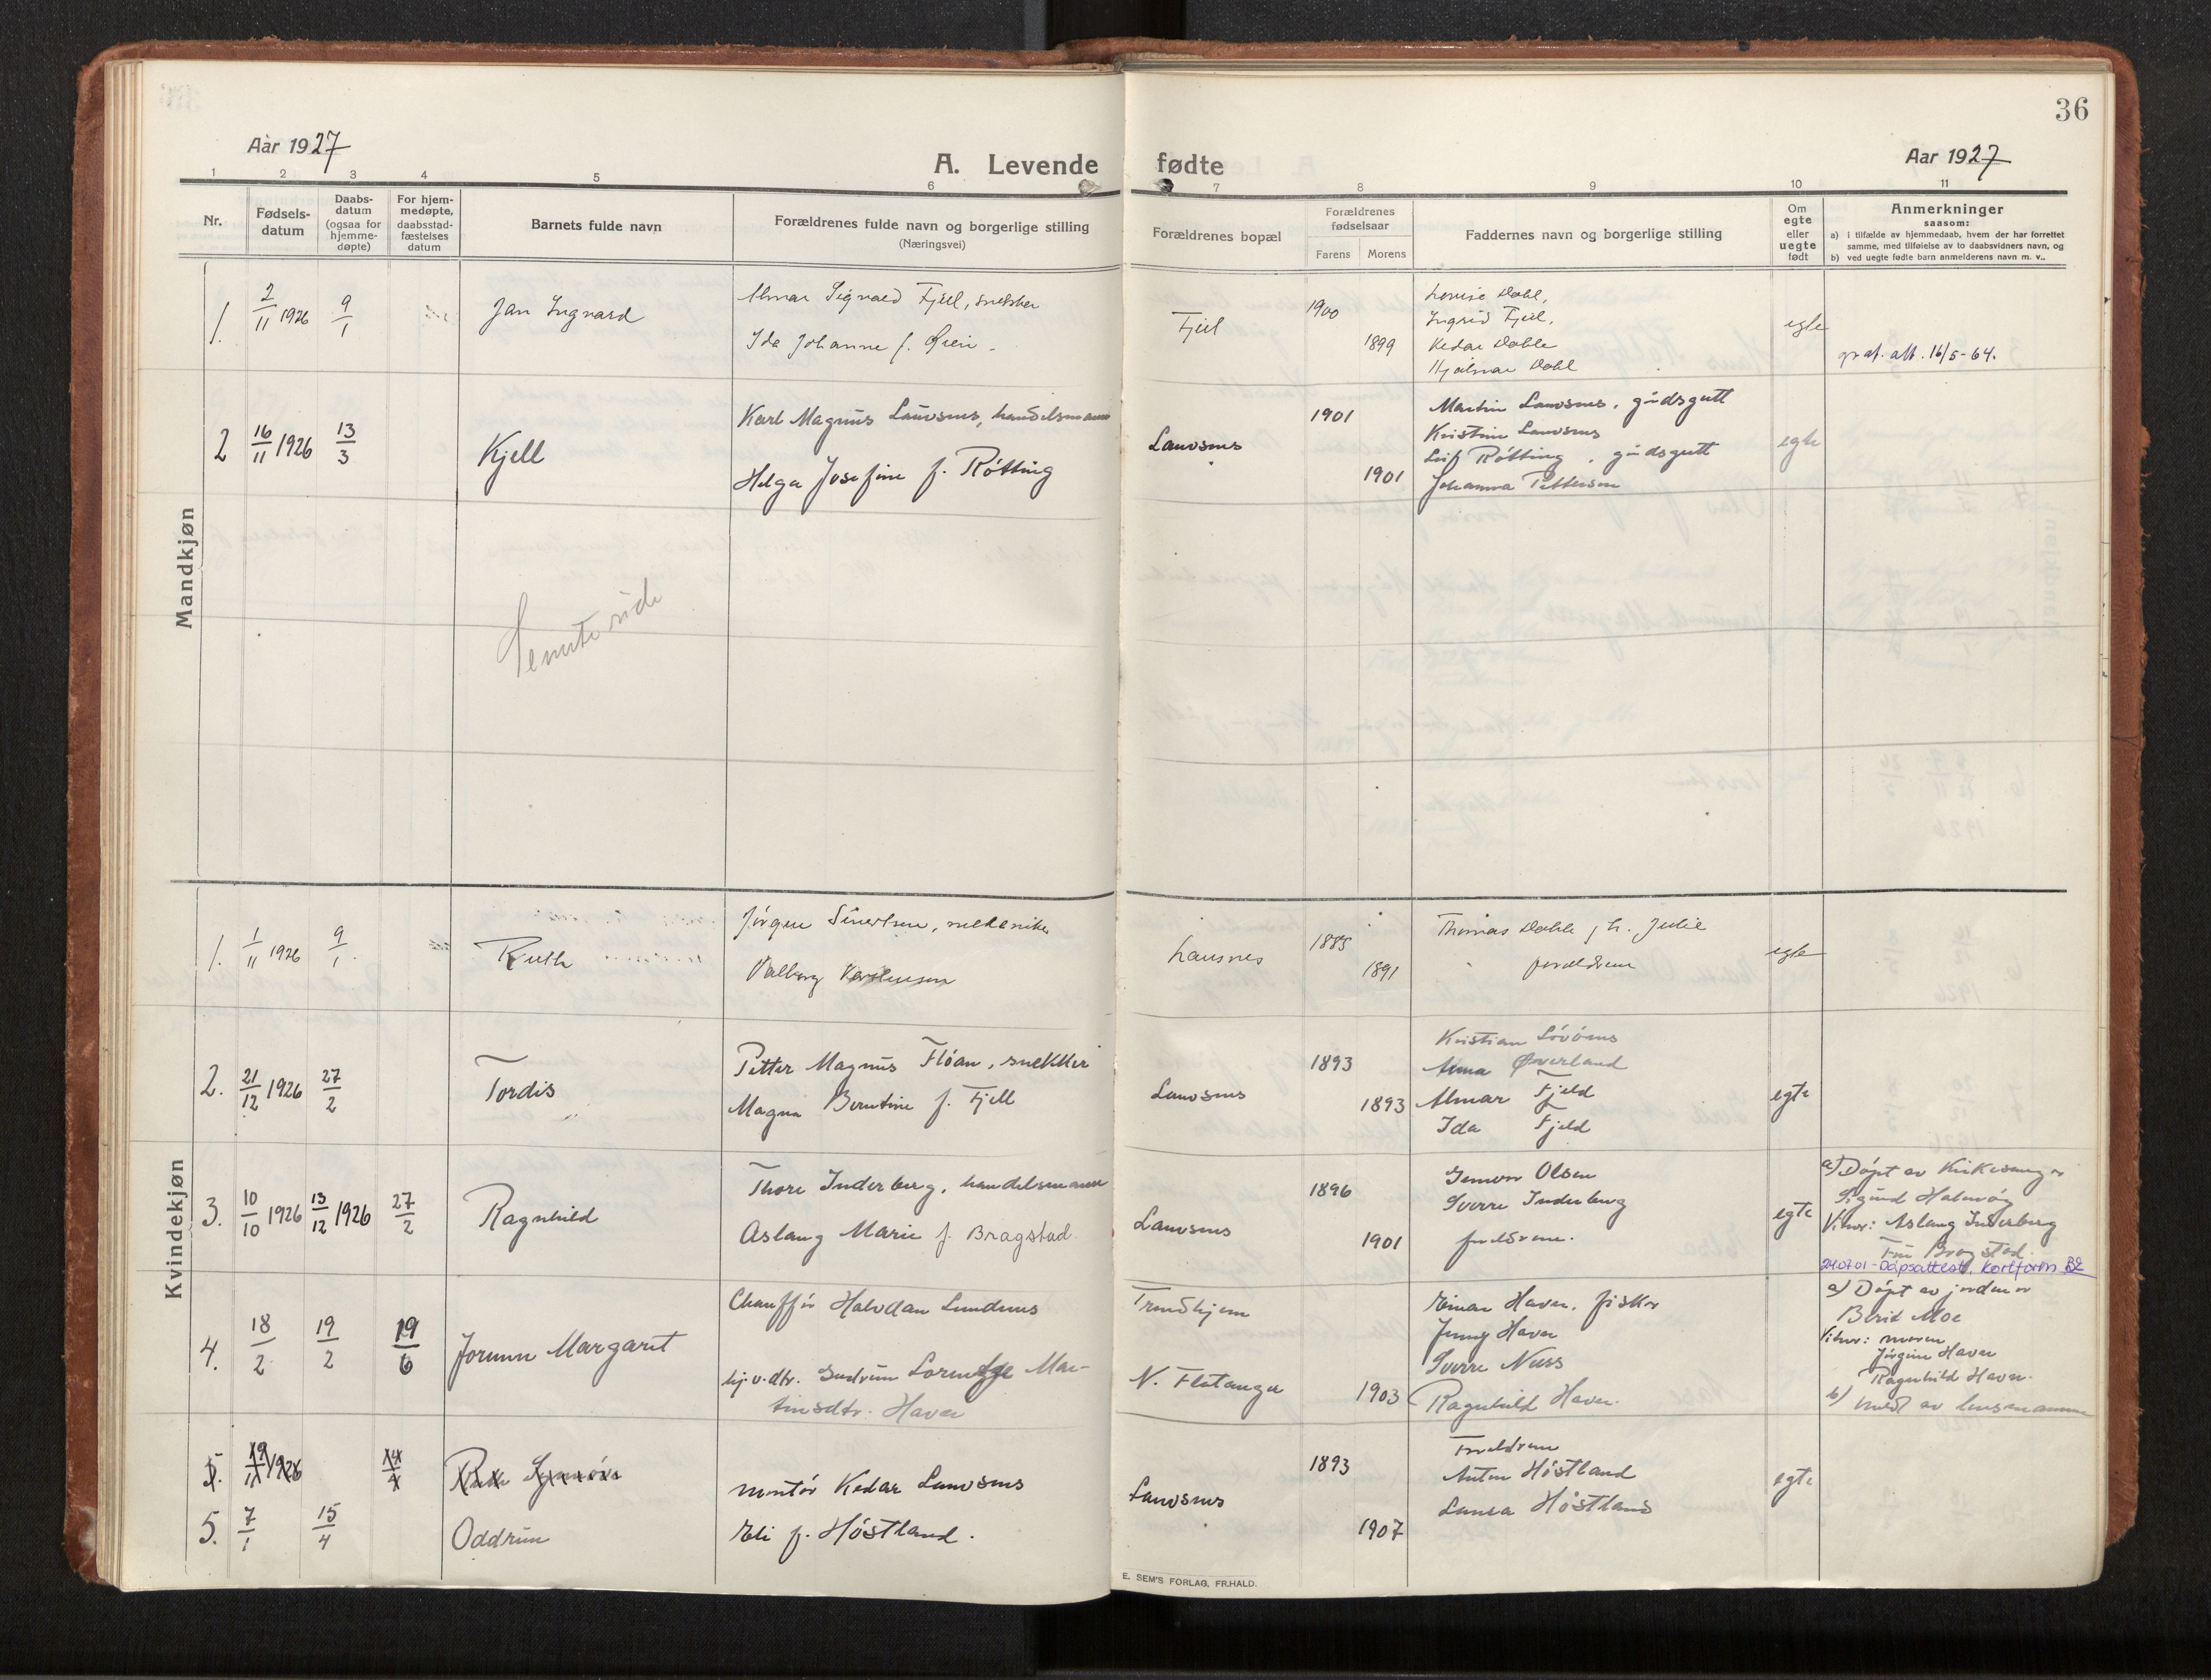 36
Aar 1927
A. Levende fødte
Aar 1927
1 2 3 4 5 6 7 8 9 10 11
Nr.
Fødsels-
datum
Daabs-
datum
(ogsaa for
hjemme-
døpte)
For hjem-
medøpte,
daabsstad-
fæstelses
datum
Barnets fulde navn
Forældrenes fulde navn og borgerlige stilling
(Næringsvei)
Forældrenes bopæl
Forældrenes
fødselsaar
Farens Morens
Faddernes navn og borgerlige stilling
Om
egte
eller
uegte
født
Anmerkninger
saasom:
a) i tilfælde av hjemmedaab, hvem der har forrettet
samme, med tilføielse av to daabsvidners navn, og
b) ved uegte fødte barn anmelderens navn m. v..
Mandkjøn
1. 2/11 1926 9/1
Jan Ingvard
Almar Sigvald Fjell, snekker
Ida Johanne f. Øien
Fjell
1900
1899
Lovise Dahl,
Ingrid Fjell,
Kedar Dahle
Hjalmar Dahl
egte
att. 16/5-64.
2 16/11 1926 13/3
Kjell
Karl Magnus Lauvsnes, handelsmann
Helga Josefine f. Rötting
Lauvsnes
1901
1901
Martin Lauvsnes, gårdsgutt
Kristine Lauvsnes
Leif Rötting, gårdsgutt
Johanna Pettersen
egte
side
Kvindekjøn
1. 1/11 1926 9/1.
Ruth
Jörgen Sivertsen, mekaniker
Valborg
Lausnes
1885
1891
Thomas Dahle, h. Julie
foreldrene
egte
2. 21/12 1926 27/2
Tordis
Petter Magnus Flöan, snekker
Magna Berntine f. Fjell
Lauvsnes
1893
1893
Kristian
Anna Øverland
Almar Fjeld
Ida Fjeld
egte
3. 10/10 1926 13/12 1926 27/2
Ragnhild
Thore Inderberg, handelsmann
Aslaug Marie f. Bragstad
Lauvsnes
1896
1901
Gunvor Olsen
Sverre Inderberg
foreldrene.
egte
a) Döpt av Kirkesanger
Sigurd
Vitner: Aslaug Inderberg
Fru Bragstad.
240701 - Dåpsattest, Kortform BE
4. 18/2 19/2 19/6
Jorunn Margaret
Chaufför Halvdan Lundsnes
hj.v.dtr. Gudrun Lorentze Mar-
tinsdtr. Haven
Trondhjem
N. Flatanger
1903
Einar Haven, fisker
Jenny Haven
Sverre Ness
Ragnhild Haven.
a) Döpt av jordmor
Berit Moe
Vitner: moren
Jörgine Haven
Ragnhild Haven.
b) meldt av lensmannen
5. 19/11 1926 14/4
5. 7/1 15/4
Oddrun
montör Kedar Lauvsnes
Eli f. Höstland.
Lauvsnes
1893
1907
Foreldrene
Anton Höstland
Laura Höstland
egte
E. SEM'S FORLAG, FR.HALD.